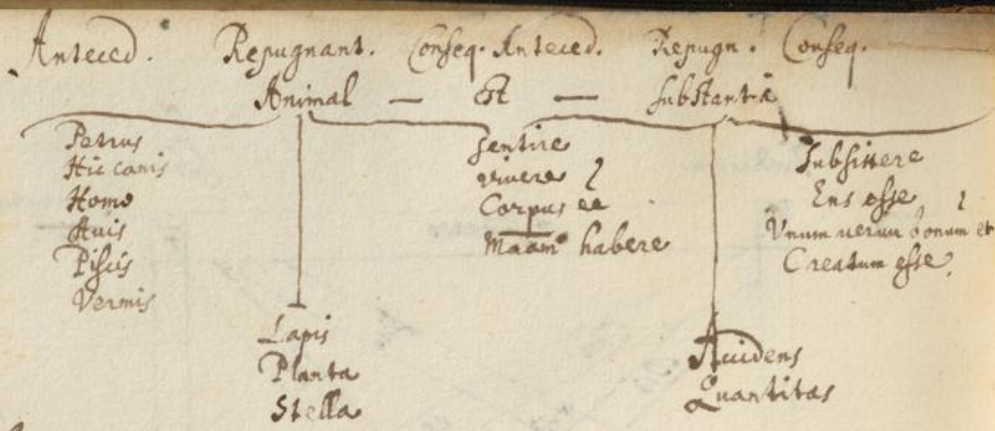 Anteced. Repugnant. Conseq. Anteced. Repugn. Conseq.
Animal — est — substantia
Petrus
Hic canis
Homo
Auis
Piscis
Vermis
Lapis
Planta
Stella
sentire
viuere
Corpus ee
Maam habere
Accidens
Quantitas
Subsistere
Ens esse
Vnum uerum bonum et
Creatum esse.